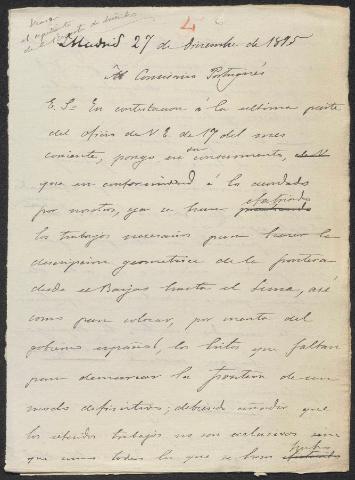 4
Madrid 27 de Diciembre de 1895
Al Comisario Portugués
E. S. En contestacion á la ultima parte
del oficio de V E. de 17 del mes
corriente, pongo en su conocimiento,
que en conformidad á lo acordado
por nosotros, ya se han efectuado
los trabajos necesarios para hacer la
descripcion geometrica de la frontera
desde el Barjas hasta el Lima, así
como para colocar, por cuenta del
gobierno español, los hitos que faltan
para demarcar la frontera de un
modo definitivo; debiendo añadir que
los referidos trabajos no son exclusivos sino
que como todos los que se han hecho